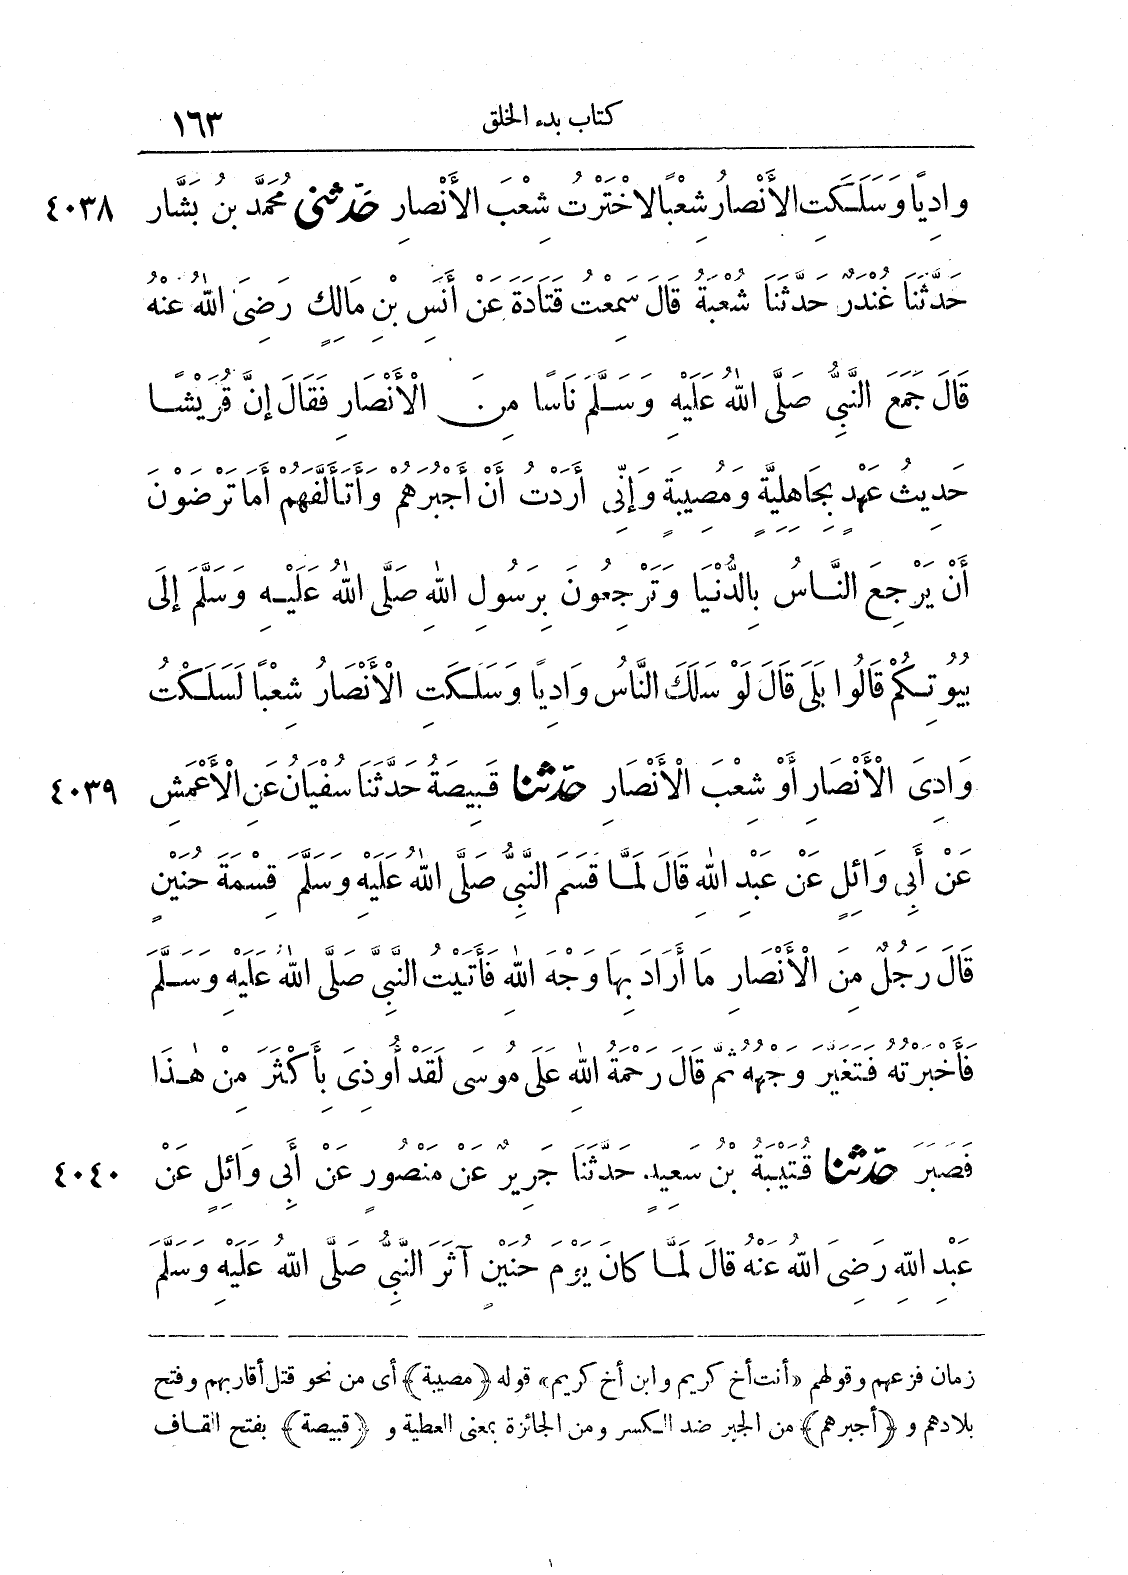 كتاب بدء الخلق ١٦٣
وَادِيًا وَسَلَكَتِ الأَنْصَارُ شِعْبًا لاخْتَرْتُ شِعْبَ الأَنْصَارِ حَدَّثَنِى مُحَمَّدُ بن بَشَّار ٤٠٣٨
حَدَّثَنَا غُنْدَرٌ حَدَّثَنَا شُعْبَةُ قَالَ سَمِعْتُ قَتَادَةَ عَنْ أَنَسِ بْنِ مَالِكٍ رَضِىَ اللهُ عَنْهُ
قَالَ جَمَعَ النَّبِىُّ صَلَّى اللهُ عَلَيْهِ وَسَلَّمَ نَاسًا مِنَ الْأَنْصَارِ فَقَالَ إِنَّ قُرَيْشًا
حَدِيثُ عَهْدٍ بِجَاهِلِيَّةٍ وَمُصِيبَةٍ وَإِنِّى أَرَدْتُ أَنْ أَجْبُرَهُمْ وَأَتَأَلَّفَهُمْ أَمَا تَرْضَوْنَ
أَنْ يَرْجِعَ النَّاسُ بِالدُّنْيَا وَتَرْجِعُونَ بِرَسُولِ اللهِ صَلَّى اللهُ عَلَيْهِ وَسَلَّمَ إِلَى
بُيُوتِكُمْ قَالُوا بَلَى قَالَ لَوْ سَلَكَ النَّاسُ وَادِيًا وَسَلَكَتِ الْأَنْصَارُ شِعْبًا لَسَلَكْتُ
وَادِىَ الْأَنْصَارِ أَوْ شِعْبَ الْأَنْصَارِ حَدَّثَنَا قَبِيصَةُ حَدَّثَنَا سُفْيَانُ عَنِ الْأَعْمَشِ ٤٠٣٩
عَنْ أَبِى وَائِلٍ عَنْ عَبْدِ اللهِ قَالَ لَمَّا قَسَمَ النَّبِىُّ صَلَّى اللهُ عَلَيْهِ وَسَلَّمَ قِسْمَةَ حُنَيْنٍ
قَالَ رَجُلٌ مِنَ الْأَنْصَارِ مَا أَرَادَ بِهَا وَجْهَ اللهِ فَأَتَيْتُ النَّبِىَّ صَلَّى اللهُ عَلَيْهِ وَسَلَّمَ
فَأَخْبَرْتُهُ فَتَغَيَّرَ وَجْهُهُ ثُمَّ قَالَ رَحْمَةُ اللهِ عَلَى مُوسَى لَقَدْ أُوذِىَ بِأَكْثَرَ مِنْ هٰذَا
فَصَبَرَ حَدَّثَنَا قُتَيْبَةُ بْنُ سَعِيدٍ حَدَّثَنَا جَرِيرٌ عَنْ مَنْصُورٍ عَنْ أَبِى وَائِلٍ عَنْ ٤٠٤٠
عَبْدِ اللهِ رَضِىَ اللهُ عَنْهُ قَالَ لَمَّا كَانَ يَوْمَ حُنَيْنٍ آثَرَ النَّبِىُّ صَلَّى اللهُ عَلَيْهِ وَسَلَّمَ
زمان فزعهم وقولهم «أنت أخ كريم وابن أخ كريم» قوله ﴿مصيبة﴾ أى من نحو قتل أقاربهم وفتح
بلادهم و ﴿أجبرهم﴾ من الجبر ضد الكسر ومن الجائزة بمعنى العطية و ﴿قبيصة﴾ بفتح القاف